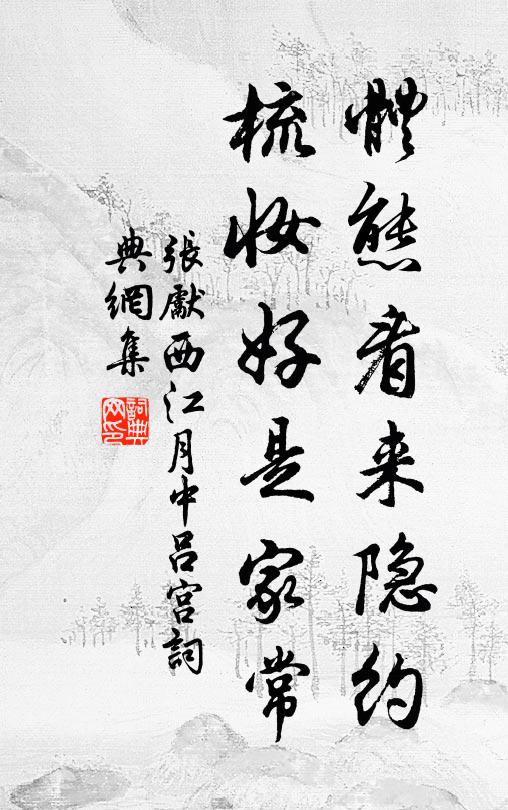 體態看来隐约
梳妆好是家常
張獻西江月中吕宫詞
典網集
詞典網印